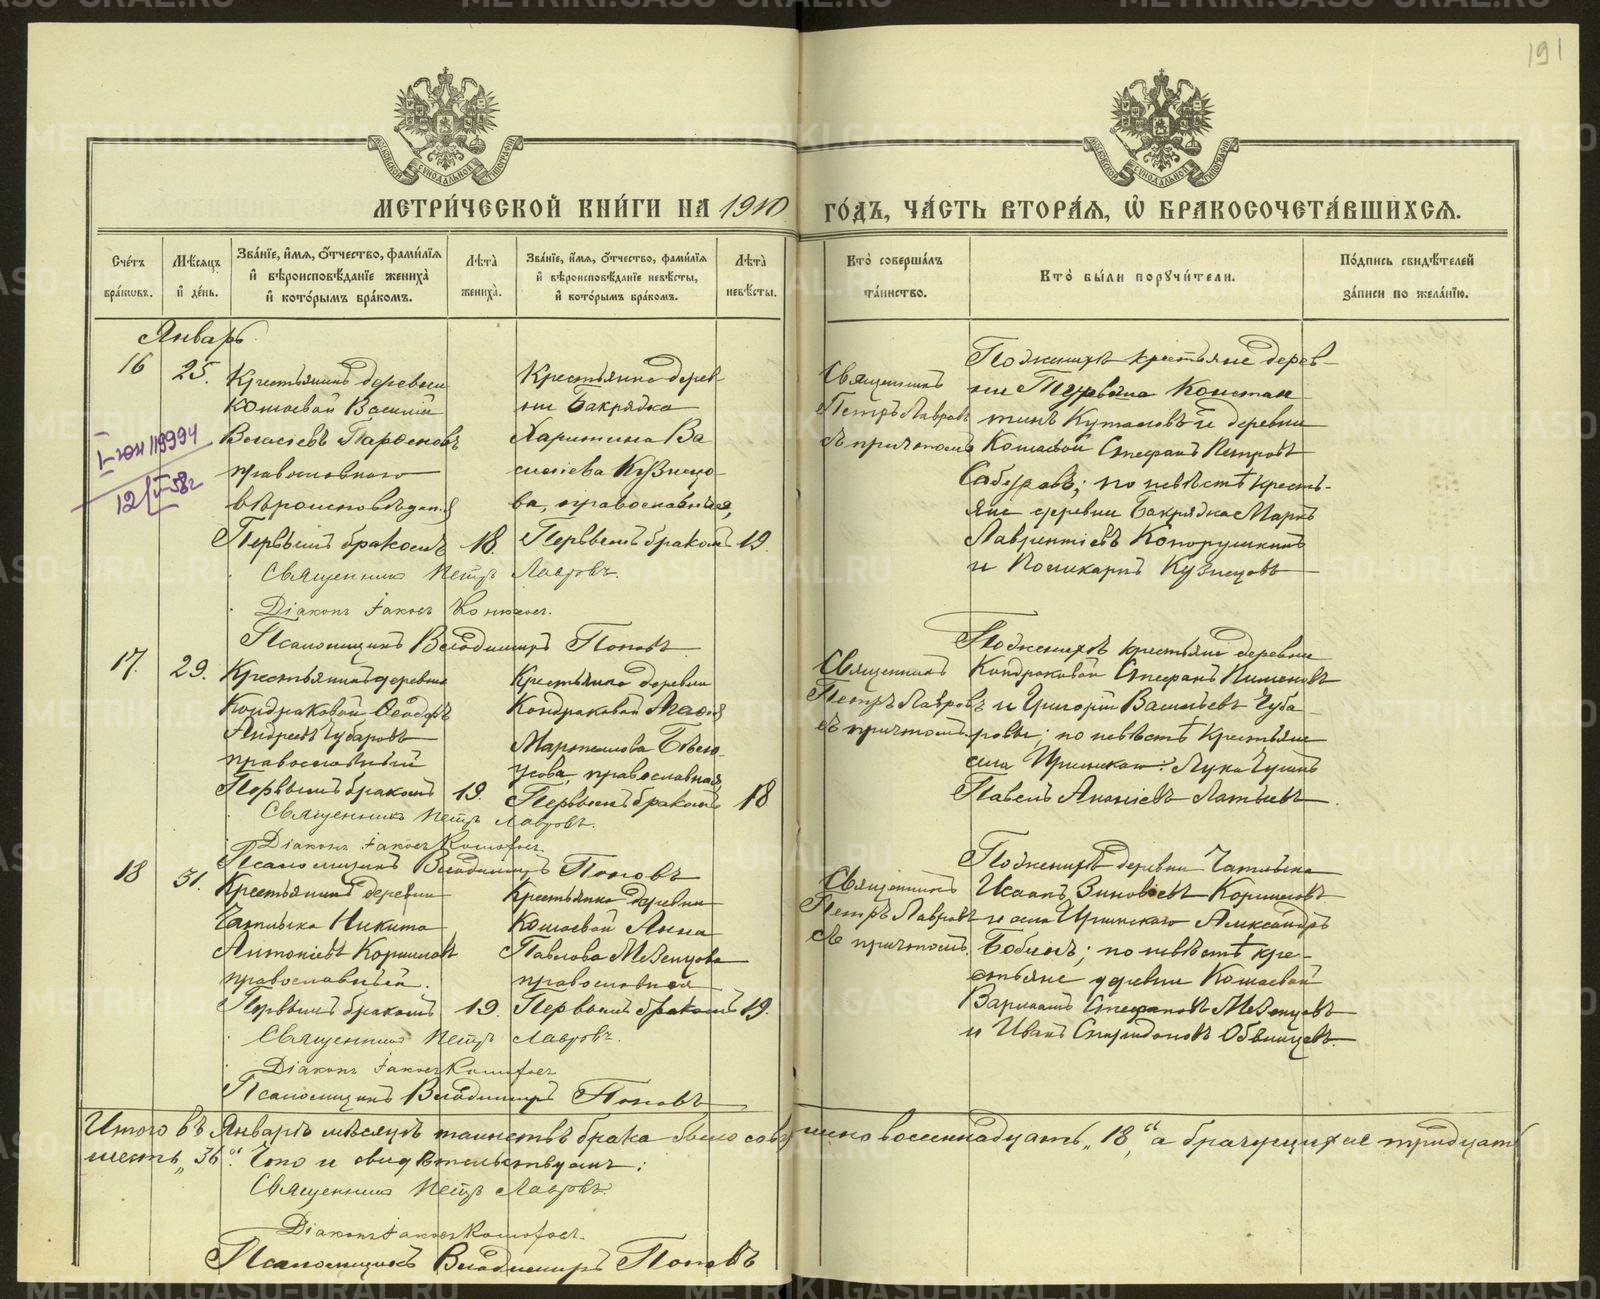 191
МЕТРИЧЕСКОЙ КНИГИ НА 1910 ГОДЪ, ЧАСТЬ ВТОРАЯ, Ѡ БРАКОСОЧЕТАВШИХСЯ.
Счетъ браковъ.
Мѣсяцъ и день.
Званіе, имя, отчество, фамилія и вѣроисповѣданіе жениха и которымъ бракомъ.
Лѣта жениха.
Званіе, имя, отчество, фамилія и вѣроисповѣданіе невѣсты, и которымъ бракомъ.
Лѣта невѣсты.
Кто совершалъ таинство.
Кто были поручители.
Подпись свидѣтелей записи по желанію.
Январь
16
25.
Крестьянинъ деревни
Кошаевой Василій
Власіевъ Парѳеновъ
православнаго
вѣроисповѣданія
Первымъ бракомъ
18.
Крестьянка дерев-
ни Бакряжа
Харитина Ва
силіева Кузнецо-
ва, православная,
Первымъ бракомъ
19.
Священникъ
Петръ Лавровъ
съ причтомъ
По женихѣ крестьяне дерев-
ни Констан
тинъ Кутановъ и деревни
Кошаевой Стефанъ Петровъ
Сабуровъ; по невѣстѣ кресть-
яне деревни Бакряжа Маркъ
Лаврентіевъ
и Поликарпъ Кузнецовъ
Священникъ Петръ Лавровъ.
Діаконъ Іаковъ
Псаломщикъ Владимиръ Поповъ
17.
29.
Крестьянинъ деревни
Кондраковой Ѳеодоръ
Андреевъ Чубаровъ
православный
Первымъ бракомъ
19.
Крестьянка деревни
Кондраковой
Бѣло-
усова, православная
Первымъ бракомъ
18
Священникъ
Петръ Лавровъ
съ причтомъ
По женихѣ крестьяне деревни
Кондраковой Стефанъ Пименовъ
и Григорій Васильевъ Чуба-
ровы; по невѣстѣ крестьяне
села Иргинскаго: Лука
Павелъ Ананіевъ
Священникъ Петръ Лавровъ.
Діаконъ Іаковъ
Псаломщикъ Владимиръ Поповъ
18
31.
Крестьянинъ деревни
Чатлыка Никита
Антоніевъ Кормильцевъ
православный.
Первымъ бракомъ
19.
Крестьянка деревни
Кошаевой Анна
Павлова Мезенцова
православная
Первымъ бракомъ
19.
Священникъ
Петръ Лавровъ
съ причтомъ.
По женихѣ деревни Чатлыка
Исаакъ Зиновіевъ
и села Иргинскаго Александръ
Бобинъ; по невѣстѣ кре-
стьяне деревни Кошаевой
Варлаамъ Стефановъ Мезенцовъ
и Иванъ Спиридоновъ
Священникъ Петръ Лавровъ.
Діаконъ Іаковъ
Псаломщикъ Владимиръ Поповъ
Итого въ Январѣ мѣсяцѣ таинствъ брака было совершено восемнадцать „18“, а брачущихся тридцать
шесть „36“. Что и свидѣтельствуемъ:
Священникъ Петръ Лавровъ.
Діаконъ Іаковъ
Псаломщикъ Владимиръ Поповъ